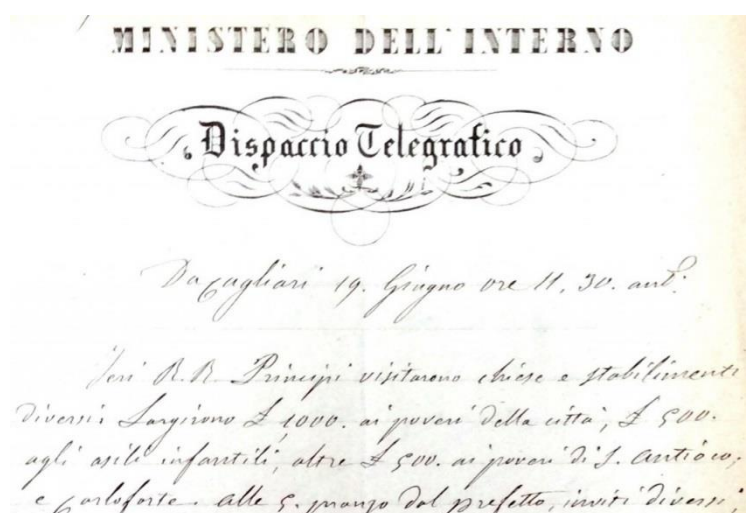 MINISTERO DELL'INTERNO
Dispaccio Telegrafico
Da Cagliari 19. Giugno ore 11, 30. ant.
Jeri R. R. Principi visitarono chiese e stabilimenti
diversi: Largirono £ 1000. ai poveri della città, £ 500.
agli asili infantili, altre £ 500. ai poveri di S. Antioco,
e Carloforte. Alle 5. pranzo dal prefetto, inviti diversi,